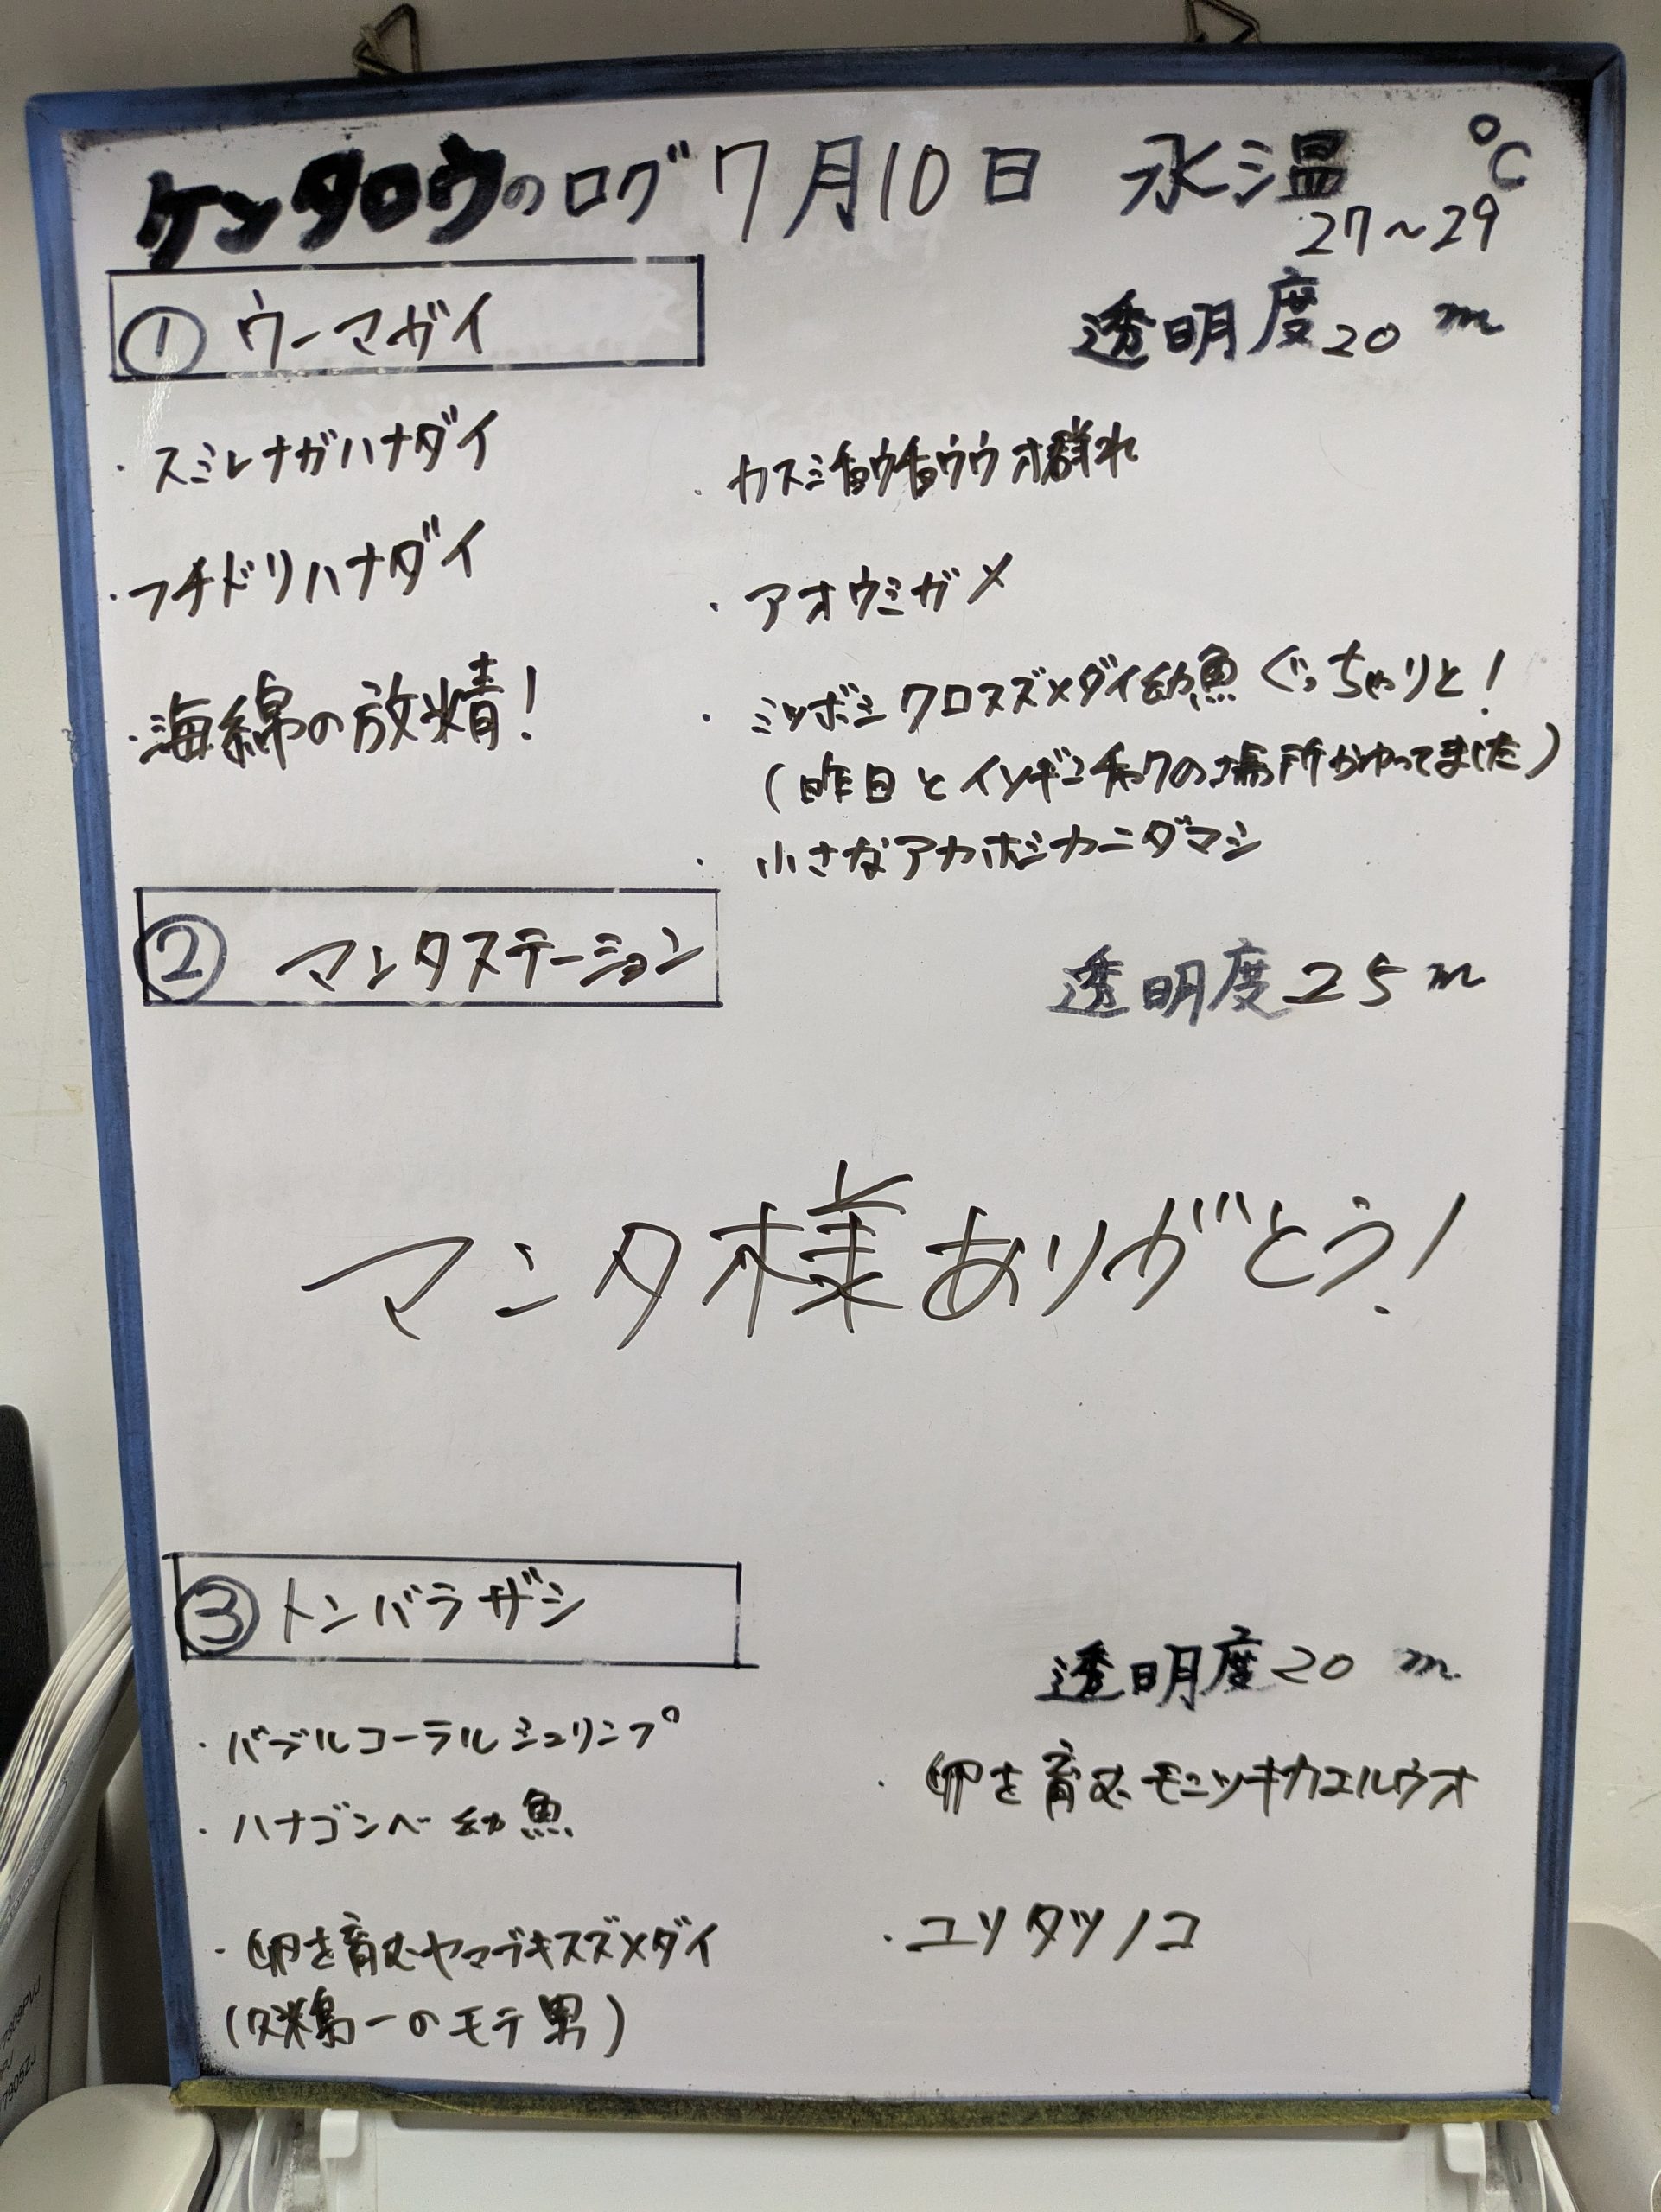 ケンタロウのログ 7月10日 水温 ℃
27～29
① ウーマガイ
透明度20m
・スミレナガハナダイ
・フチドリハナダイ
・海綿の放精！
・カスミチョウチョウウオ群れ
・アオウミガメ
・ミツボシクロスズメダイ幼魚ぐっちゃりと！
(昨日とイソギンチャクの場所かわってました)
・小さなアカホシカニダマシ
② マンタステーション
透明度25m
マンタ様ありがとう！
③ トンバラザシ
透明度20m
・バブルコーラルシュリンプ
・ハナゴンベ幼魚
・卵を育むヤマブキスズメダイ
(久米島一のモテ男)
・卵を育むモンツキカエルウオ
・ユリタツノコ
7309PVJ
PJ
7905ZJ